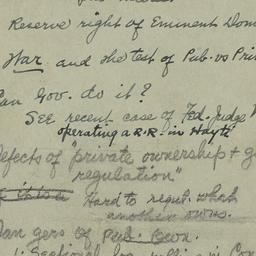 Reserve right of Eminent Dom
War and the test of Pub. vs Pri
Can Gov. do it?
See recent case of Fed. Judge
operating a R.R. in Hayti
Defects of "private ownership + g
regulation"
Hard to regul. which
another owns.
Dangers of Pub. Own.
1. Sectional log rolling in Con